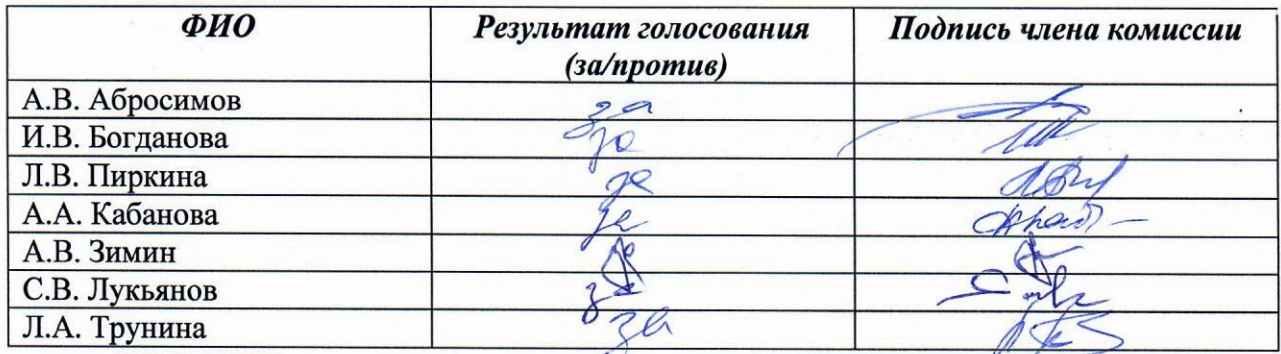 ФИО Результат голосования Подпись члена комиссии
(за/против)
А.В. Абросимов за
И.В. Богданова за
Л.В. Пиркина за
А.А. Кабанова за
А.В. Зимин
С.В. Лукьянов за
Л.А. Трунина за